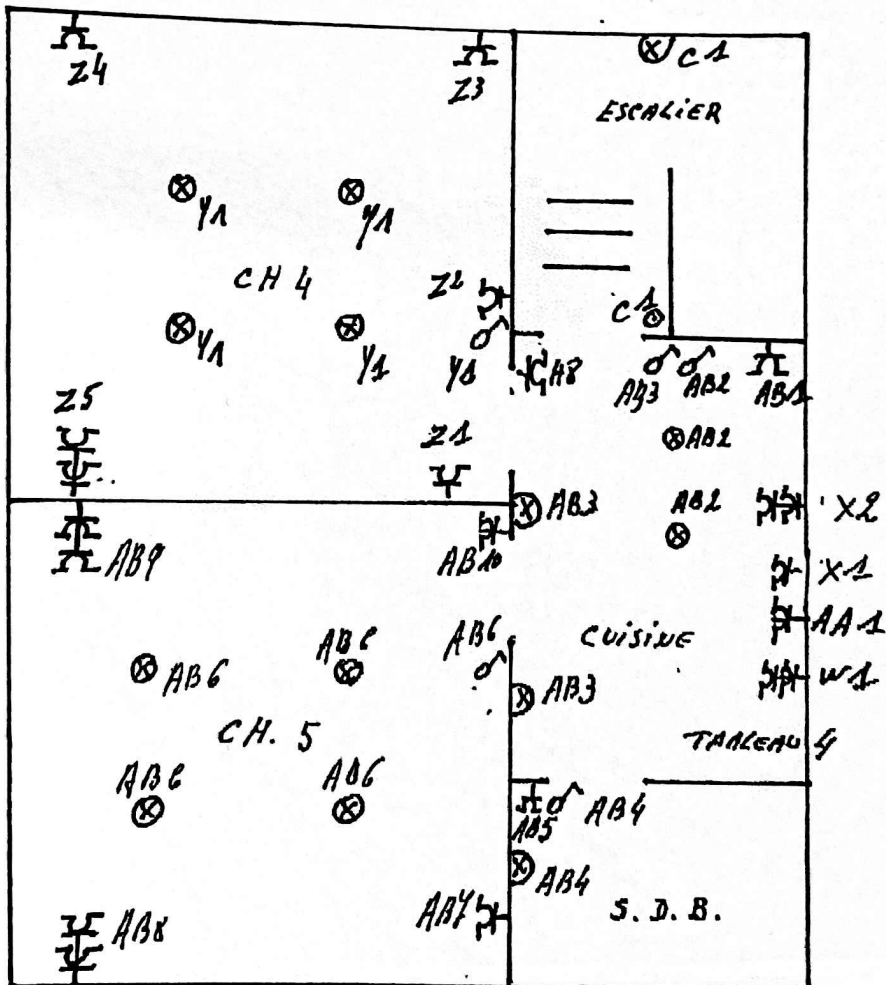 C1
Z4
Z3
ESCALIER
Y1 Y1
CH 4
Z2
C1
Y1 Y1
Y1
A8
AB3 AB2 AB1
Z5
Z1
AB2
AB3
AB2
X2
AB9
AB10
X1
AA1
AB6
CUISINE
AB6
AB6
W1
AB3
CH. 5
TABLEAU 4
AB6
AB6
AB4
AB5
AB4
AB7
S. D. B.
AB8